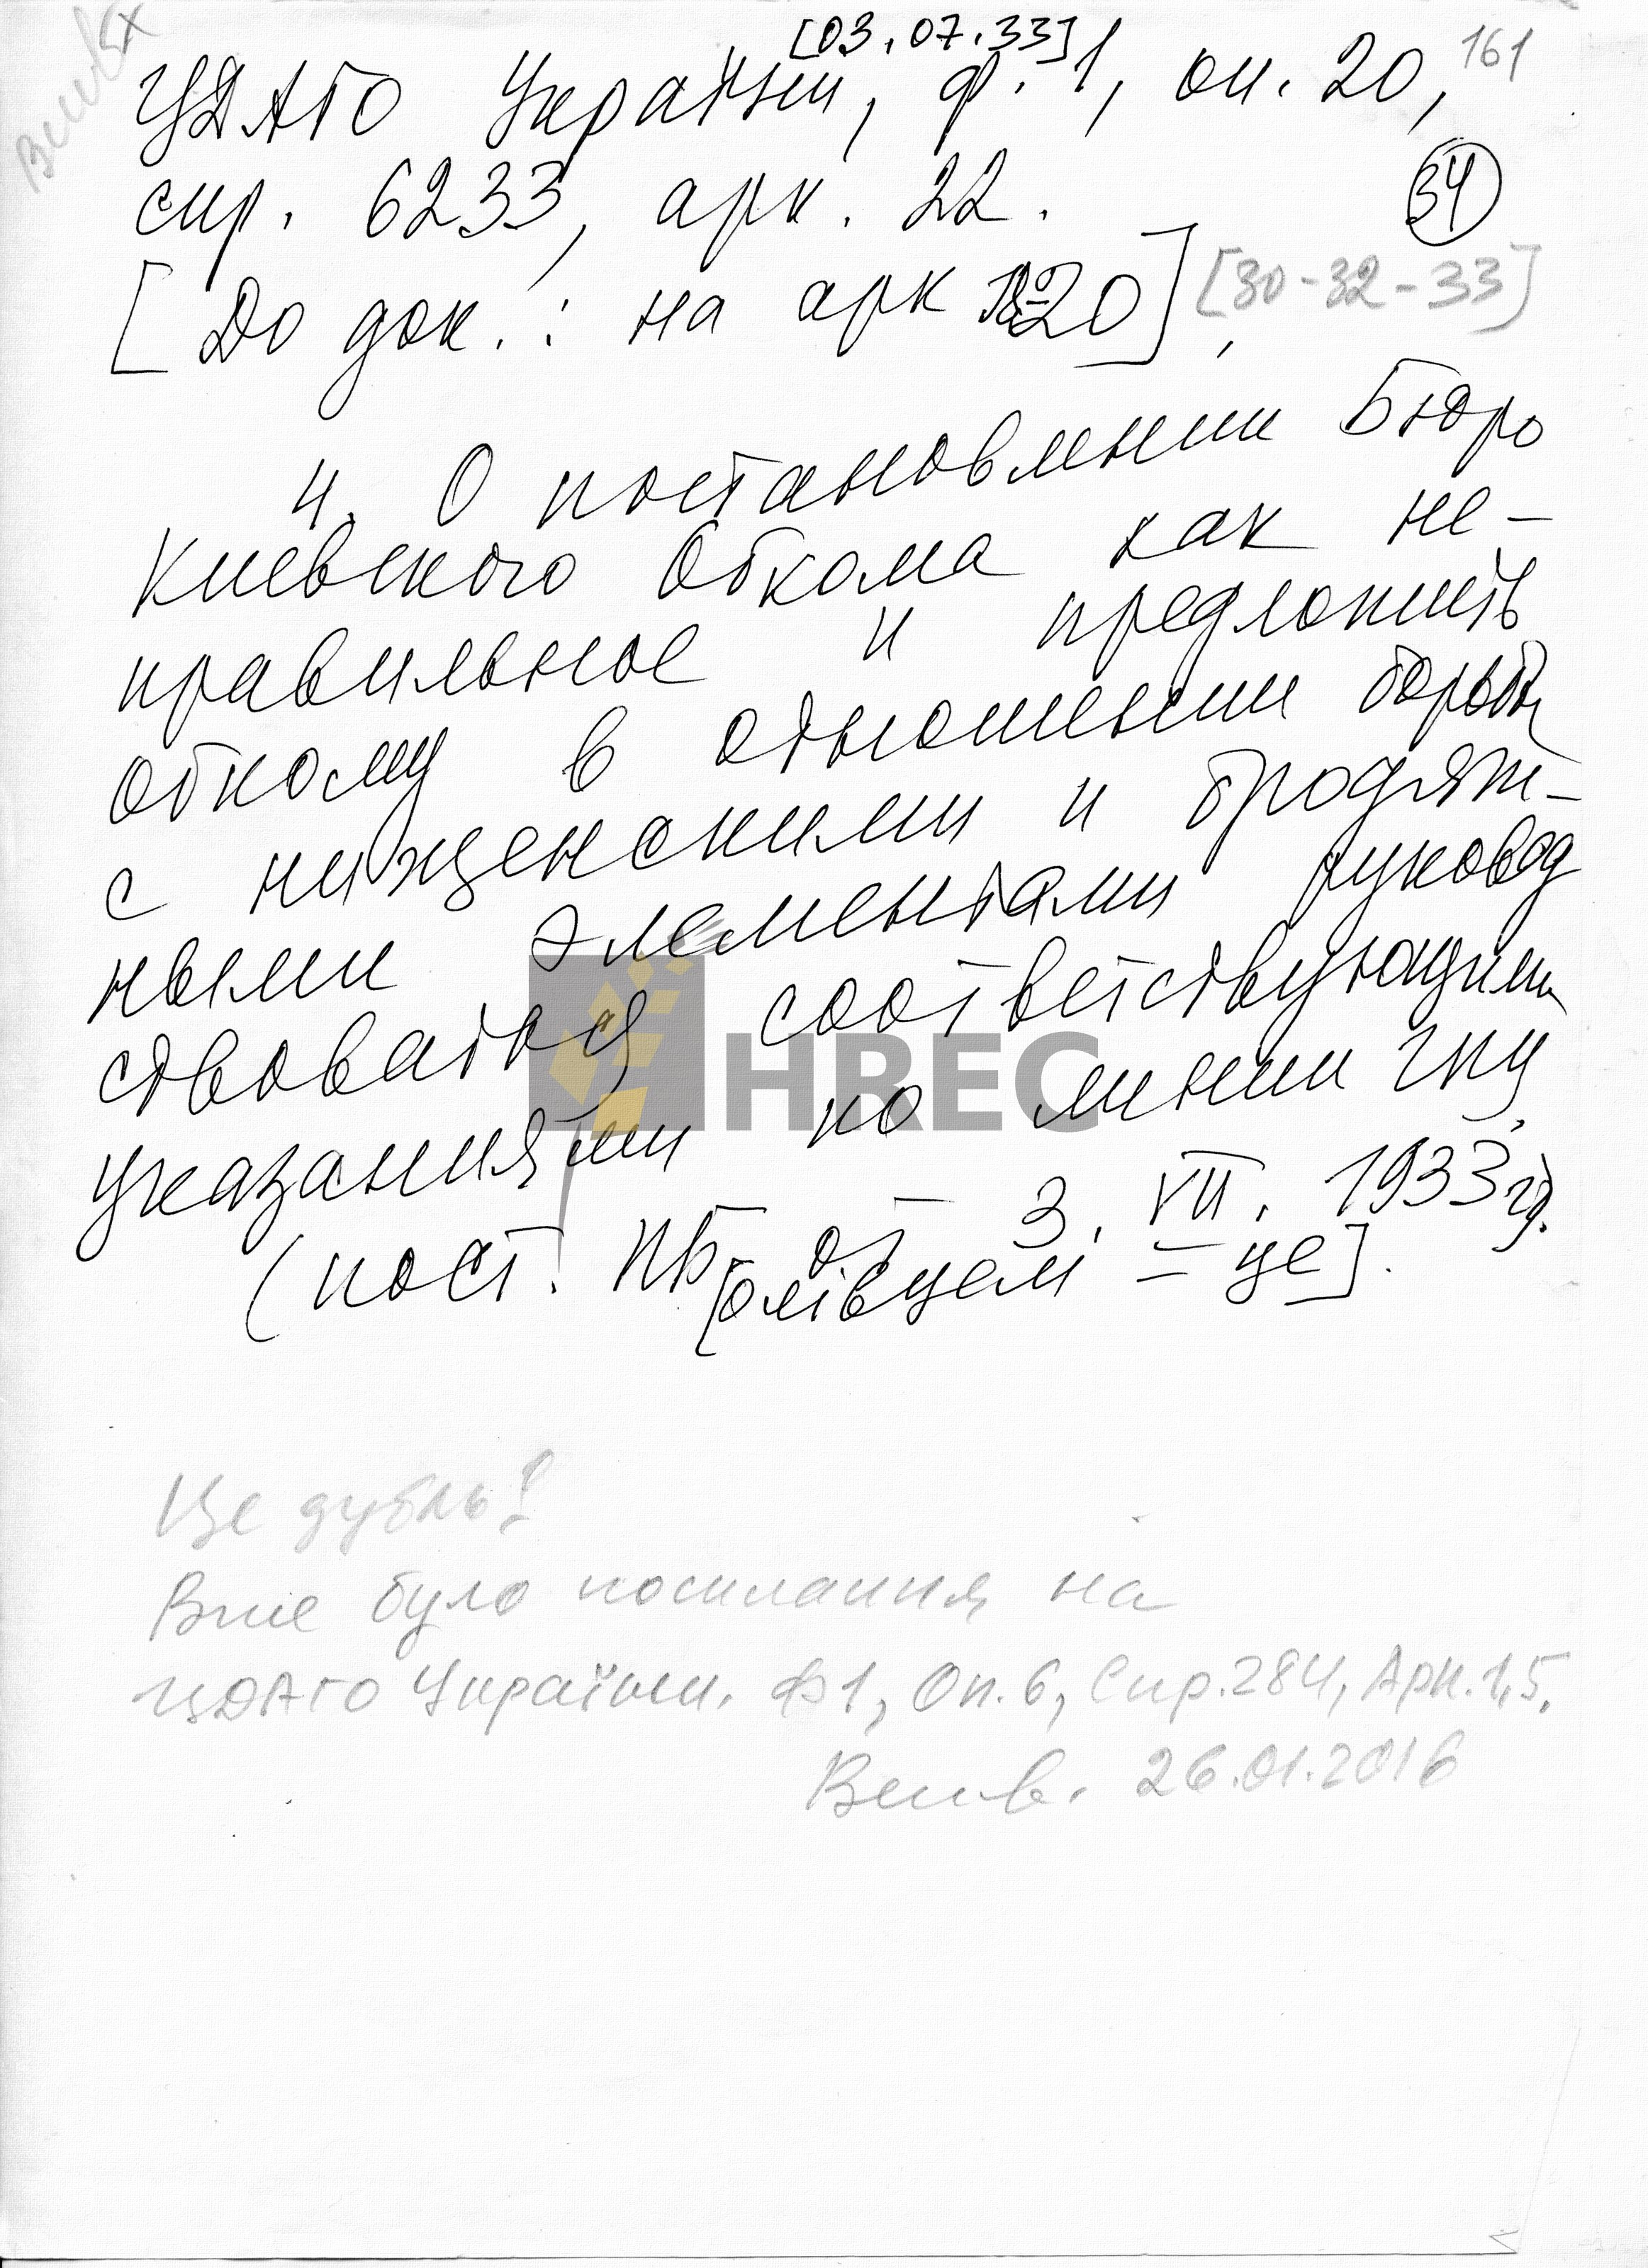 [03.07.33]
161
ЦДАГО України, ф. 1, оп. 20,
спр. 6233, арк. 22.
34
[До док.: на арк 20],
[30-32-33]
4. О постановлении Бюро
Киевского Обкома как не-
правильное и предложить
обкому в отношении борьбы
с нищенскими и бродяж-
ными элементами руковод
ствоваться соответствующими
указаниями по линии ГПУ
(пост. ПБ от 3. VII. 1933 г).
[олівцем = це].
HREC
Це дубль!
Вже було посилання на
ЦДАГО України. Ф1, Оп.6, Спр.284, Арк.1,5.
26.01.2016